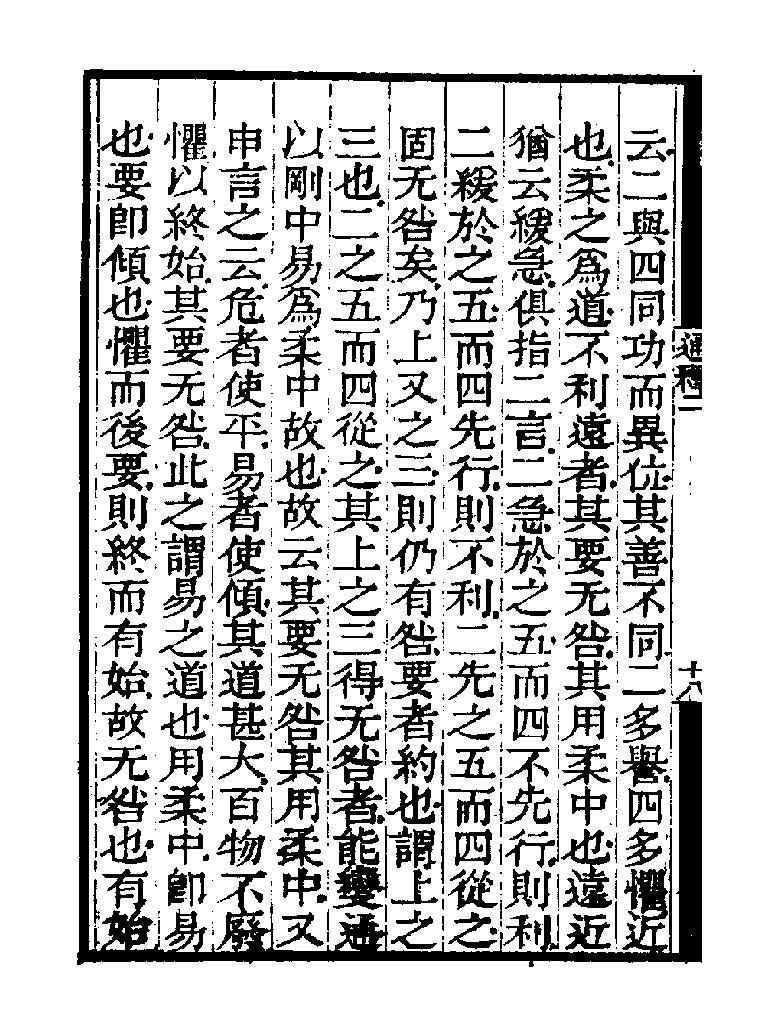 云二與四同功而異位其善不同二多譽四多懼近
也柔之爲道不利遠者其要无咎其用柔中也遠近
猶云緩急俱指二言二急於之五而四不先行則利
二緩於之五而四先行則不利二先之五而四從之
固无咎矣乃上又之三則仍有咎要者約也謂上之
三也二之五而四從之其上之三得无咎者能變通
以剛中易爲柔中故也故云其要无咎其用柔中又
申言之云危者使平易者使傾其道甚大百物不廢
懼以終始其要无咎此之謂易之道也用柔中卽易
也要卽傾也懼而後要則終而有始故无咎也有始
通釋二
十八